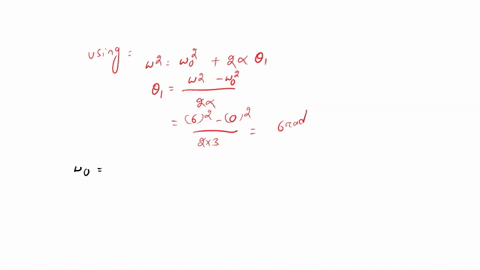 using = ω² = ω₀² + 2α θ₁
θ₁ = ω² - ω₀² / 2α
= (6)² - (0)² / 2×3 = 6 rad
ω₀ =